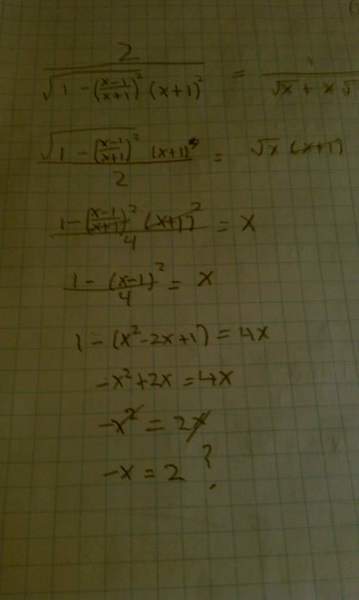 2 / √(1 - ((x-1)/(x+1))²) (x+1)² = / √x + x√
√(1 - ((x-1)/(x+1))²) (x+1) / 2 = √x (x+1)
1 - ((x-1)/(x+1))² (x+1)² / 4 = x
1 - (x-1)² / 4 = x
1 - (x² - 2x + 1) = 4x
-x² + 2x = 4x
-x² = 2x
-x = 2 ?